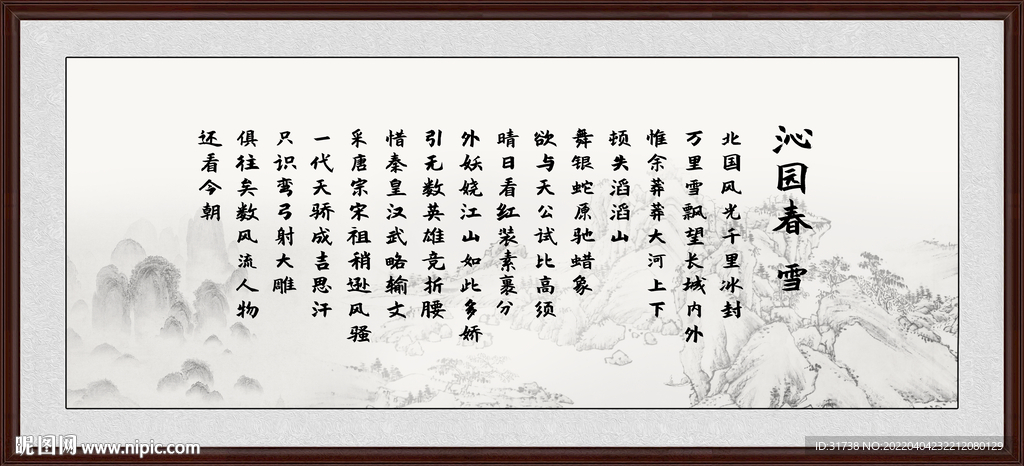 沁园春 雪
北国风光千里冰封
万里雪飘望长城内外
惟余莽莽大河上下
顿失滔滔山
舞银蛇原驰蜡象
欲与天公试比高须
晴日看红装素裹分
外妖娆江山如此多娇
引无数英雄竞折腰
惜秦皇汉武略输文
采唐宗宋祖稍逊风骚
一代天骄成吉思汗
只识弯弓射大雕
俱往矣数风流人物
还看今朝
昵图网 www.nipic.com
ID:31738 NO:20220404232212080129